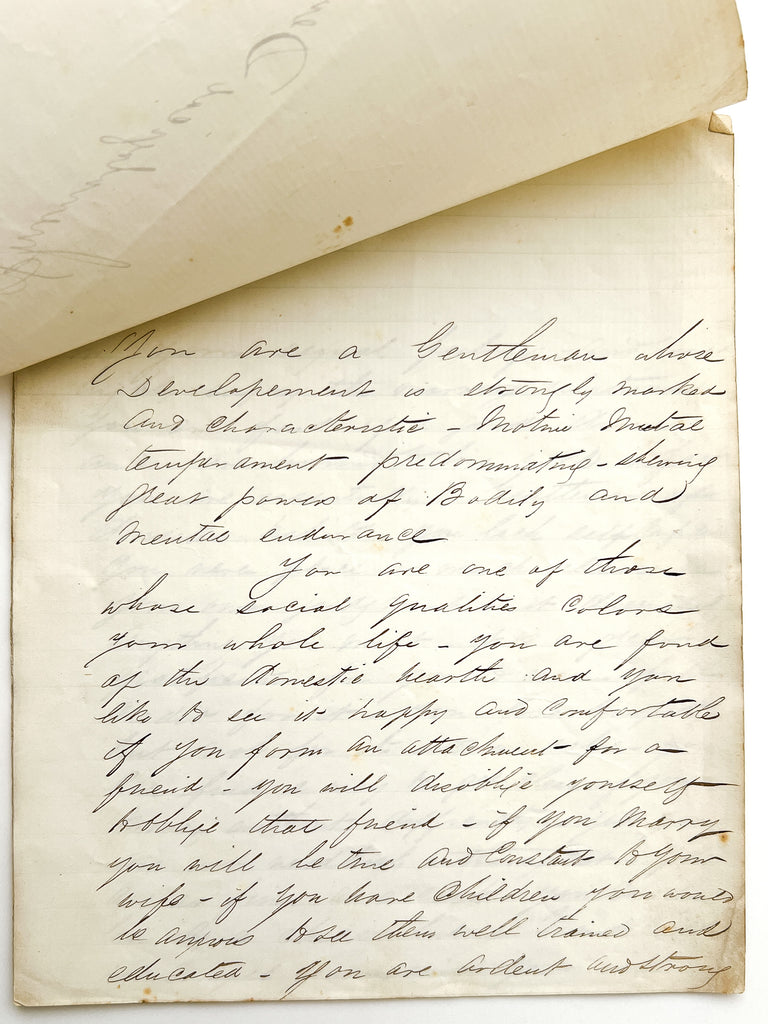 You are a Gentleman whose
Developement is strongly marked
and characteristic - Motive Mental
temperament predominating - shewing
great powers of Bodily and
Mental endurance
You are one of those
whose social qualities colors
your whole life - you are fond
of the domestic hearth and you
like to see it happy and comfortable
if you form an attachment for a
friend - you will disoblige yourself
to oblige that friend - if you Marry
you will be true and Constant to your
wife - if you have children you would
be anxious to see them well trained and
educated - You are ardent and strong